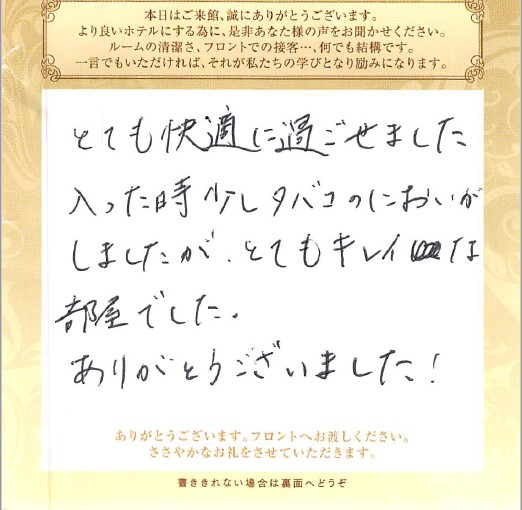 本日はご来館、誠にありがとうございます。
より良いホテルにする為に、是非あなた様の声をお聞かせください。
ルームの清潔さ、フロントでの接客…、何でも結構です。
一言でもいただければ、それが私たちの学びとなり励みになります。
とても快適に過ごせました
入った時少しタバコのにおいが
しましたが、とてもキレイな
部屋でした。
ありがとうございました!
ありがとうございます。フロントへお渡しください。
ささやかなお礼をさせていただきます。
書ききれない場合は裏面へどうぞ